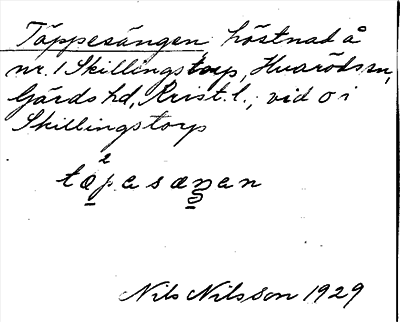 Täppesängen, höstnad å
nr. 1 Skillingstorp, Hvaröds sn,
Gärds hd, Krist. l.; vid o i
Skillingstorp
ta²pasæŋan
Nils Nilsson 1929